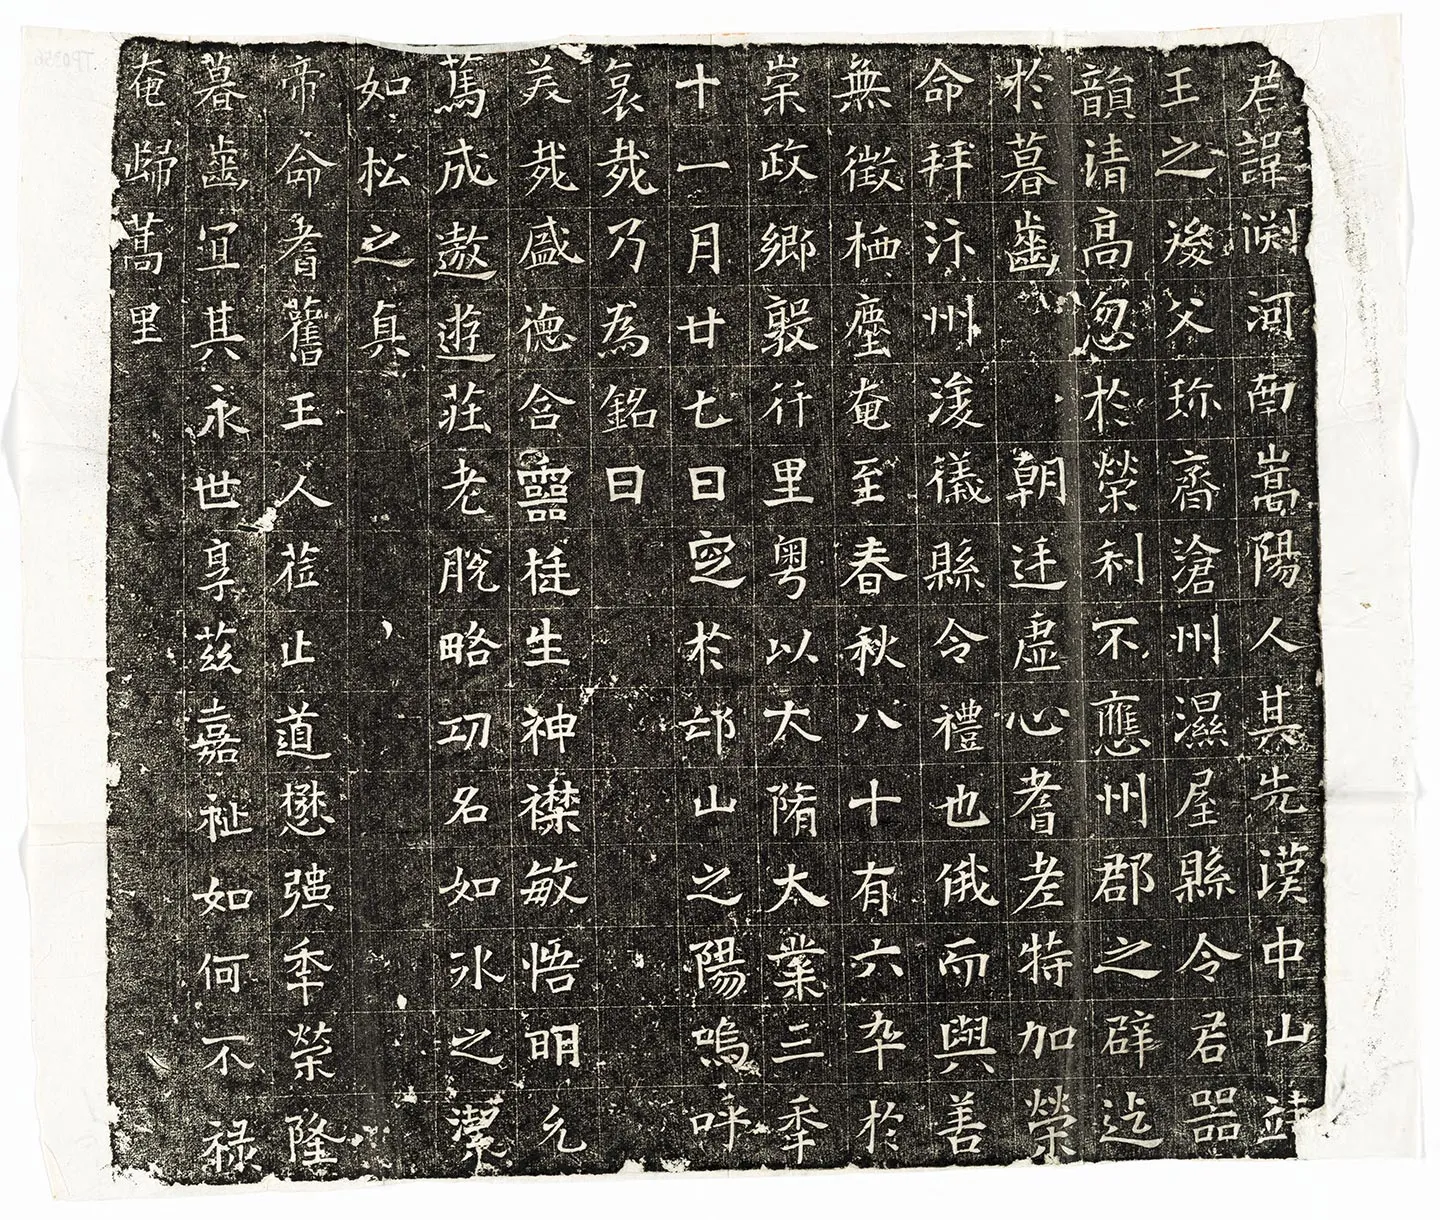 君諱渊河南嵩陽人其先漢中山靖
王之後父珎齊滄州濕屋縣令君器
韻清高忽於榮利不應州郡之辟迄
於暮齒 朝廷虛心耆耊特加榮
命拜汴州浚儀縣令禮也俄而與善
無徵栖塵奄至春秋八十有六卒於
崇政鄉敦行里粤以大隋大業三秊
十一月廿七日窆於邙山之陽嗚呼
哀哉乃為銘曰
美哉盛德含靈挺生神襟敏悟明允
篤成遨遊莊老脫略功名如氷之潔
如松之貞
帝命耆舊王人莅止道懋强秊榮隆
暮齒宜其永世享兹嘉祉如何不禄
奄歸蒿里